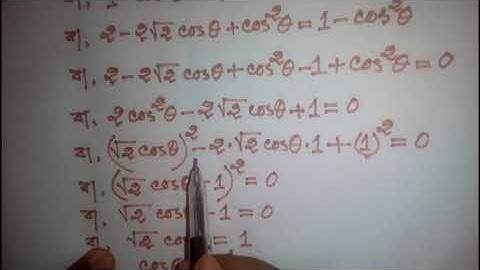 বা, 2 - 2√2 cosθ + cos²θ = 1 - cos²θ
বা, 2 - 2√2 cosθ + cos²θ - 1 + cos²θ = 0
বা, 2cos²θ - 2√2 cosθ + 1 = 0
বা, (√2 cosθ)² - 2·√2 cosθ·1 + (1)² = 0
বা, (√2 cosθ - 1)² = 0
বা, √2 cosθ - 1 = 0
বা, √2 cosθ = 1
cosθ